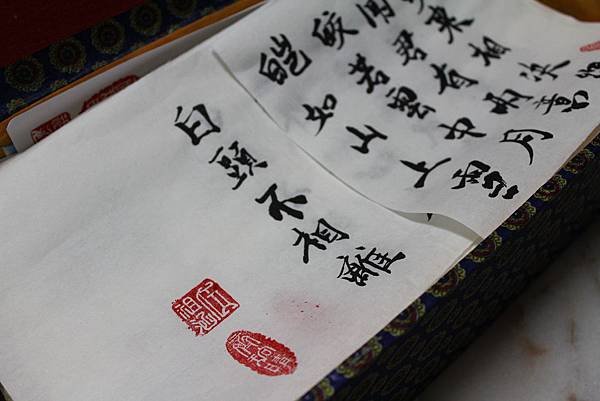 皚如山上雪
皎若雲中月
聞君有兩意
來相決
白頭不相離